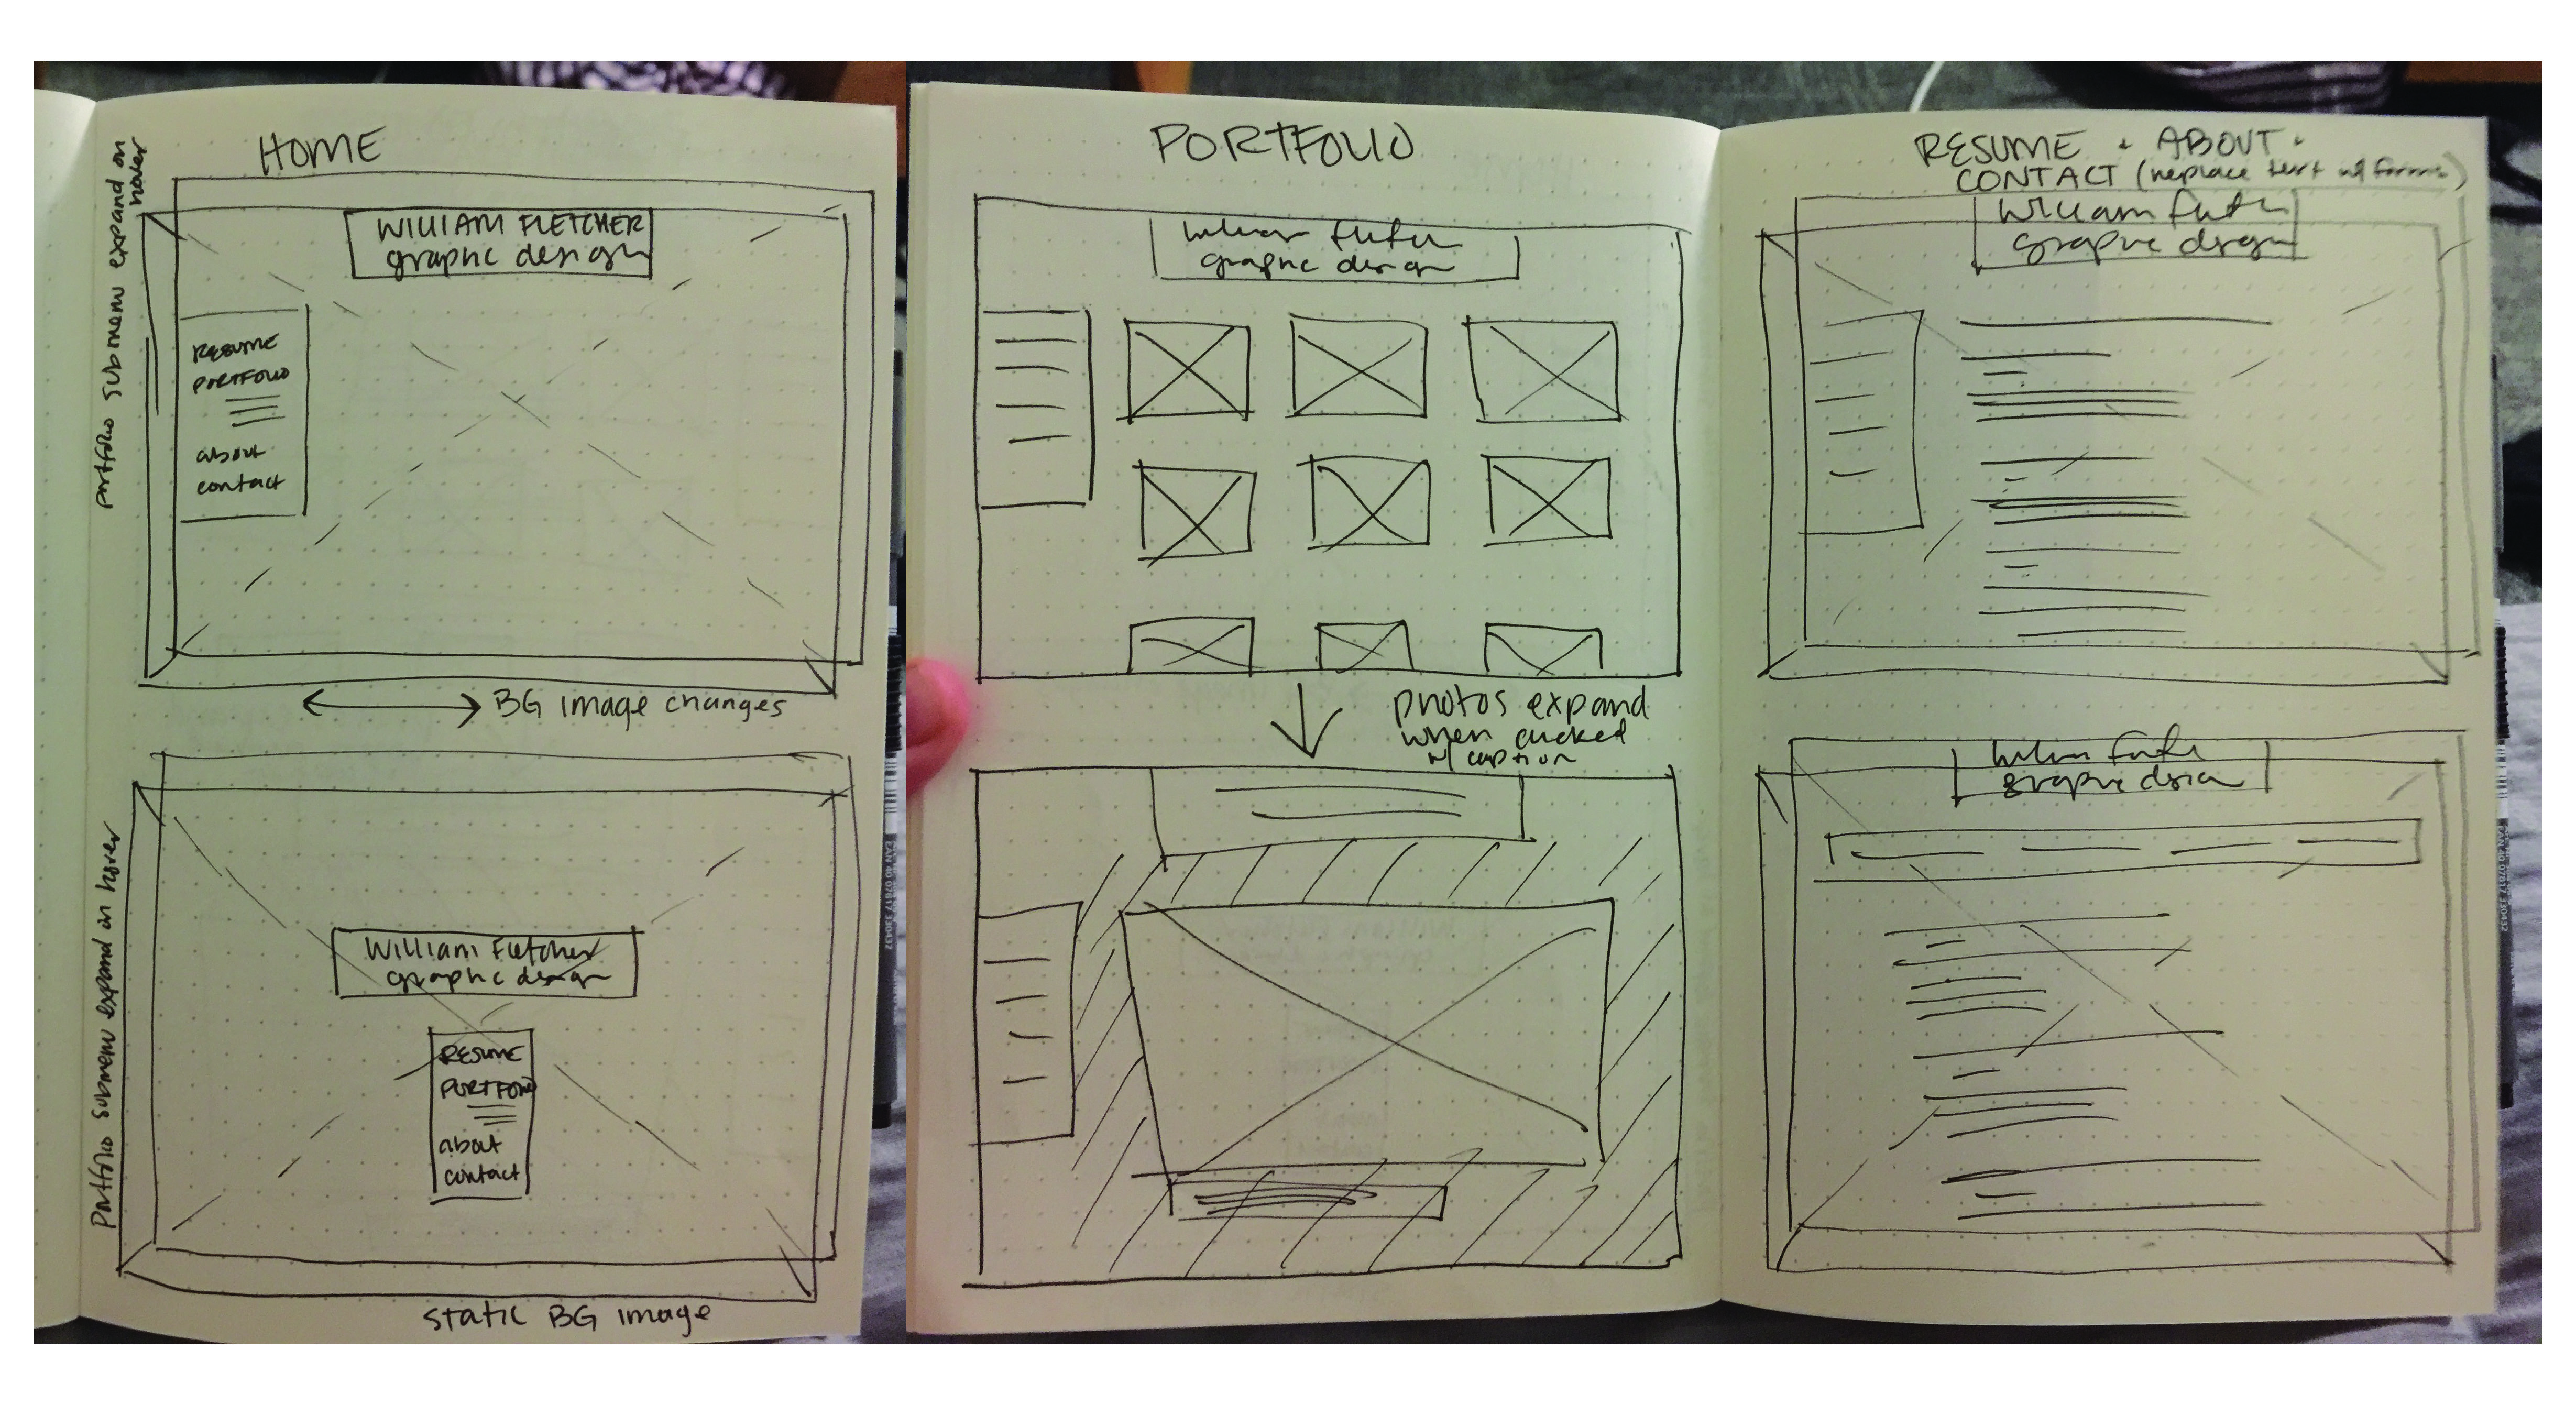 HOME
portfolio submenu expand on
hover
WILLIAM FLETCHER
graphic design
RESUME
PORTFOLIO
about
contact
BG image changes
Portfolio submenu expand in hover
William Fletcher
graphic design
RESUME
PORTFOLIO
about
contact
static BG image
PORTFOLIO
graphic design
photos expand
when clicked
w/ caption
RESUME + ABOUT +
CONTACT (replace text w/ forms)
William
graphic design
graphic design